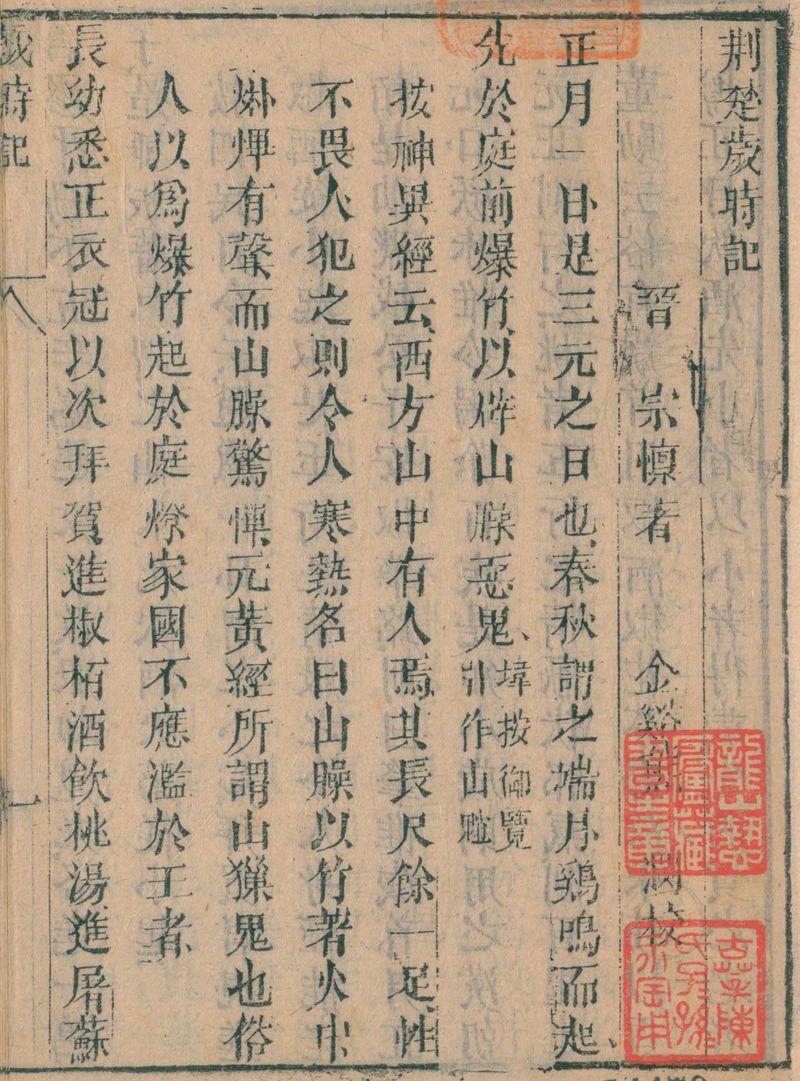 荆楚歲時記
晉 宗懍著 金谿 校
正月一日是三元之日也春秋謂之端月鷄鳴而起
先於庭前爆竹以辟山臊惡鬼
按御覽
引作山魈
按神異經云西方山中有人焉其長尺餘一足性
不畏人犯之則令人寒熱名曰山臊以竹著火中
烞熚有聲而山臊驚憚元黃經所謂山鬼也俗
人以爲爆竹起於庭燎家國不應濫於王者
長幼悉正衣冠以次拜賀進椒栢酒飲桃湯進屠蘇
歲時記 一